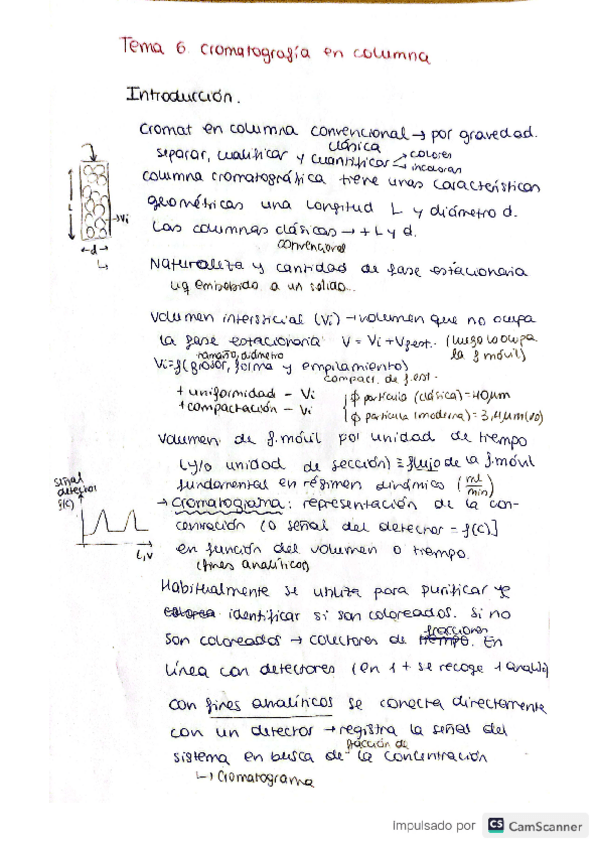 Tema 6. cromatografía en columna
Introducción.
cromat en columna convencional → por gravedad.
clásica
separar, cualificar y cuantificar → colores
→ incoloras
columna cromatográfica tiene unas características
geométricas una longitud L y diámetro d.
Las columnas clásicas → + L y d.
convencional
L
→ Vi
← d →
Naturaleza y cantidad de fase estacionaria
liq embebido a un solido..
volumen intersticial (Vi) → volumen que no ocupa
la fase estacionaria V = Vi + Vfest. (luego lo ocupa
la f móvil)
tamaño, diámetro
Vi=f(grosor, forma y empilamiento)
compact. de f.est.
+ uniformidad - Vi
+ compactación - Vi
ϕ partícula (clásica) = 40μm
ϕ partícula (moderna) =
volumen de f.móvil por unidad de tiempo
(y/o unidad de sección) ≡ flujo de la f.móvil
fundamental en régimen dinámico (ml/min)
señal
detector
f(c)
t,v
→ cromatograma: representación de la con-
centración (o señal del detector = f(c)]
en función del volumen o tiempo.
(fines analíticos)
Habitualmente se utiliza para purificar
identificar si son coloreados. si no
fracciones
son coloreados → colectores de tiempo. En
línea con detectores (en 1 + se recoge 1 analito)
con fines analíticos se conecta directamente
con un detector → registra la señal del
función de
sistema en busca de la concentración
↳ cromatograma
Impulsado por CS CamScanner